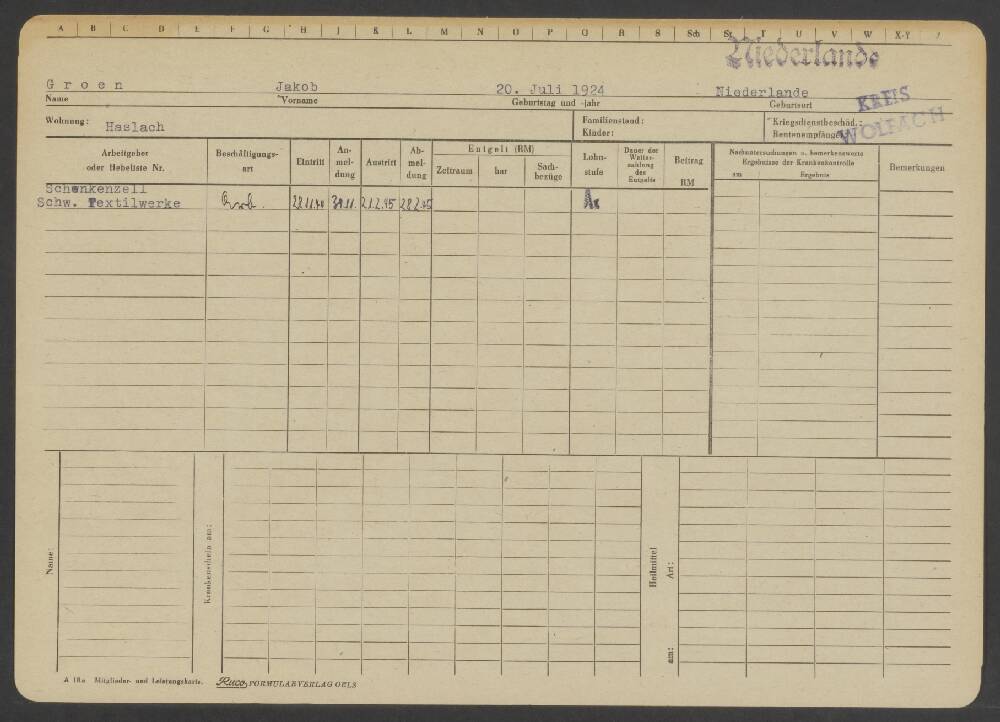 A B C D E F G H J K L M N O P Q R S Sch St T U V W X-Y Z
Niederlande
Groen Jakob 20. Juli 1924 Niederlande
Name Vorname Geburtstag und -jahr Geburtsort
KREIS WOLFACH
Wohnung: Haslach Familienstand: Kriegsdienstbeschäd.:
Kinder: Rentenempfänger
Arbeitgeber oder Hebeliste Nr. Beschäftigungsart Eintritt Anmeldung Austritt Abmeldung Entgelt (RM) Lohnstufe Dauer der Weiterzahlung des Entgelts Beitrag RM Nachuntersuchungen u. bemerkenswerte Ergebnisse der Krankenkontrolle Bemerkungen
Zeitraum bar Sachbezüge am Ergebnis
Schenkenzell
Schw. Textilwerke 21.2.45 28.2.45
Name:
Krankenschein am:
Heilmittel
Art:
am:
A 18a Mitglieder- und Leistungskarte. Ruco FORMULARVERLAG OELS